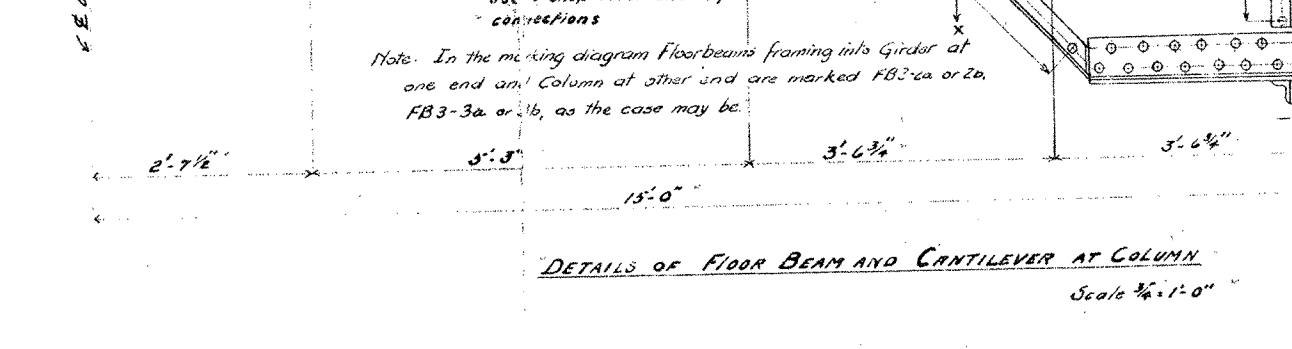 connections
Note. In the marking diagram Floorbeams framing into Girder at
one end and Column at other end are marked FB2-2a or 2b,
FB3-3a or 3b, as the case may be.
2'-7½" 5'-3" 3'-6¾" 3'-6¾"
15'-0"
DETAILS OF FLOOR BEAM AND CANTILEVER AT COLUMN
Scale ¾"=1'-0"